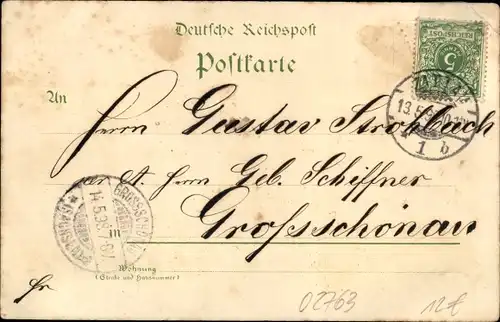 Deutsche Reichspost
Postkarte
REICHSPOST
5
An
Herrn Gustav Strohbach
13.5.9
1 b
Herrn Geb. Schiffner
GROSSSCHÖNAU
14.5.98
in Grossschönau
Wohnung
(Straße und Hausnummer)
02763
12€